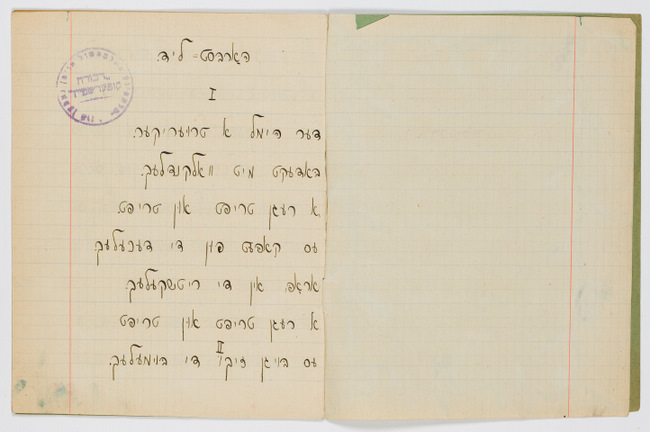 הארבסט-ליד.
I
דער הימל א טרויעריקער.
באדעקט מיט וואלקנדלעך.
א רעגן טריפט און טריפט.
עס קאפעט פון די דעכעלעך.
אראפ אין די ריטשקעלעך.
א רעגן טריפט און טריפט
II
עס הויגן זיך די הוימעלעך.